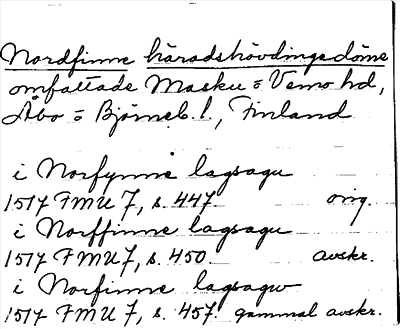 Nordfinne häradshövdingedöme
omfattade Masku o Vemo hd,
Åbo o Björneb. l., Finland
i Norfynne lagsagu
1517 FMU 7, s. 447. orig.
i Norffinne lagsagu
1517 FMU 7, s. 450. avskr.
i Norfinne lagsagw
1517 FMU 7, s. 457 gammal avskr.